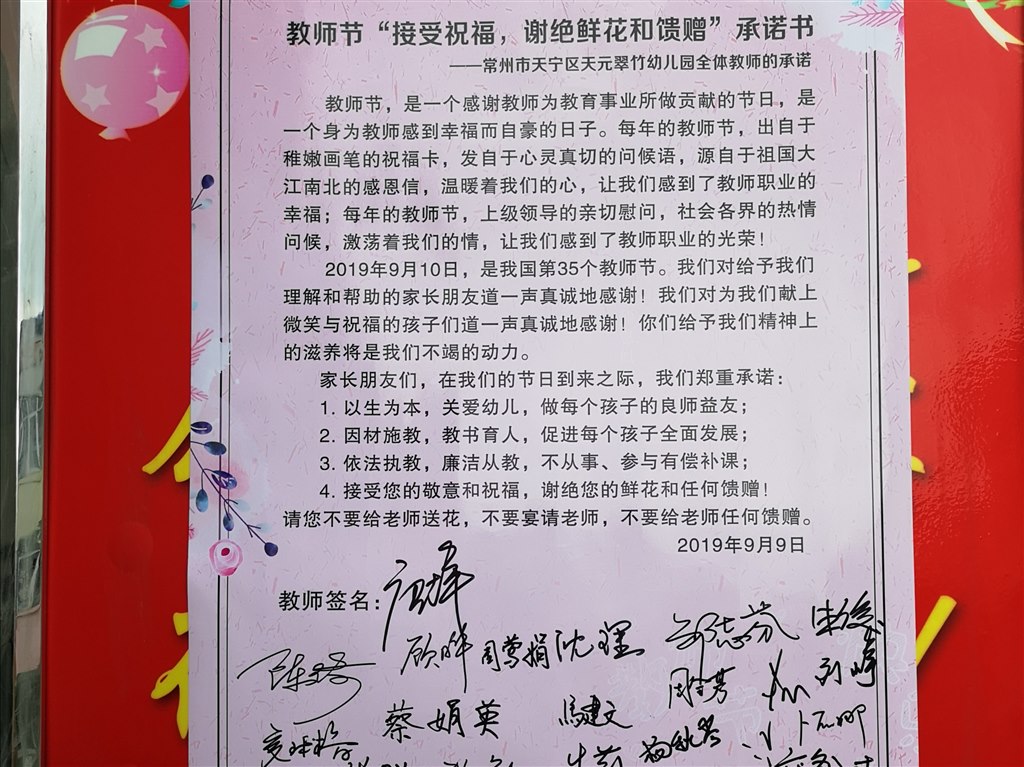 教师节“接受祝福，谢绝鲜花和馈赠”承诺书
——常州市天宁区天元翠竹幼儿园全体教师的承诺
教师节，是一个感谢教师为教育事业所做贡献的节日，是
一个身为教师感到幸福而自豪的日子。每年的教师节，出自于
稚嫩画笔的祝福卡，发自于心灵真切的问候语，源自于祖国大
江南北的感恩信，温暖着我们的心，让我们感到了教师职业的
幸福；每年的教师节，上级领导的亲切慰问，社会各界的热情
问候，激荡着我们的情，让我们感到了教师职业的光荣！
2019年9月10日，是我国第35个教师节。我们对给予我们
理解和帮助的家长朋友道一声真诚地感谢！我们对为我们献上
微笑与祝福的孩子们道一声真诚地感谢！你们给予我们精神上
的滋养将是我们不竭的动力。
家长朋友们，在我们的节日到来之际，我们郑重承诺：
1. 以生为本，关爱幼儿，做每个孩子的良师益友；
2. 因材施教，教书育人，促进每个孩子全面发展；
3. 依法执教，廉洁从教，不从事、参与有偿补课；
4. 接受您的敬意和祝福，谢绝您的鲜花和任何馈赠！
请您不要给老师送花，不要宴请老师，不要给老师任何馈赠。
2019年9月9日
教师签名：
周莺娟 沈理
蔡娟英